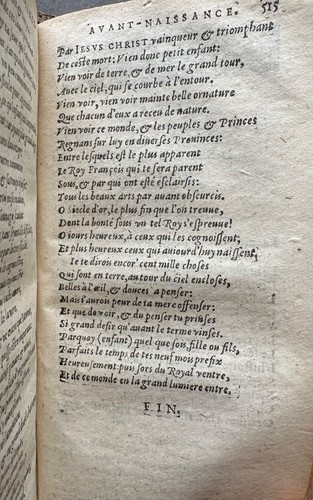 AVANT-NAISSANCE. 515
Par IESVS CHRIST vainqueur & triomphant
De ceste mort: Vien donc petit enfant:
Vien voir de terre, & de mer le grand tour,
Avec le ciel, qui se courbe à l'entour.
Vien voir, vien voir mainte belle ornature
Que chacun d'eux a receu de nature.
Vien voir ce monde, & les peuples & Princes
Regnans sur luy en diverses Prouinces:
Entre lesquels est le plus apparent
Le Roy François qui te sera parent
Sous, & par qui ont esté esclairsis:
Tous les beaux arts par auant obscurcis.
O siecle d'or, le plus fin que l'on treuue,
Dont la bonté sous vn tel Roy s'espreuue!
O iours heureux, à ceux qui les cognoissent,
Et plus heureux ceux qui auiourd'huy naissent,
Ie te dirois encor' cent mille choses
Qui sont en terre, autour du ciel encloses,
Belles à l'œil, & douces à penser:
Mais i'aurois peur de ta mere offenser:
Et que de voir, & du penser tu prinses
Si grand desir qu'auant le terme vinses.
Parquoy (enfant) quel que sois, fille ou fils,
Parfaits le temps de tes neuf mois prefix
Heureusement: puis sors du Royal ventre,
Et de ce monde en la grand lumiere entre.
FIN.